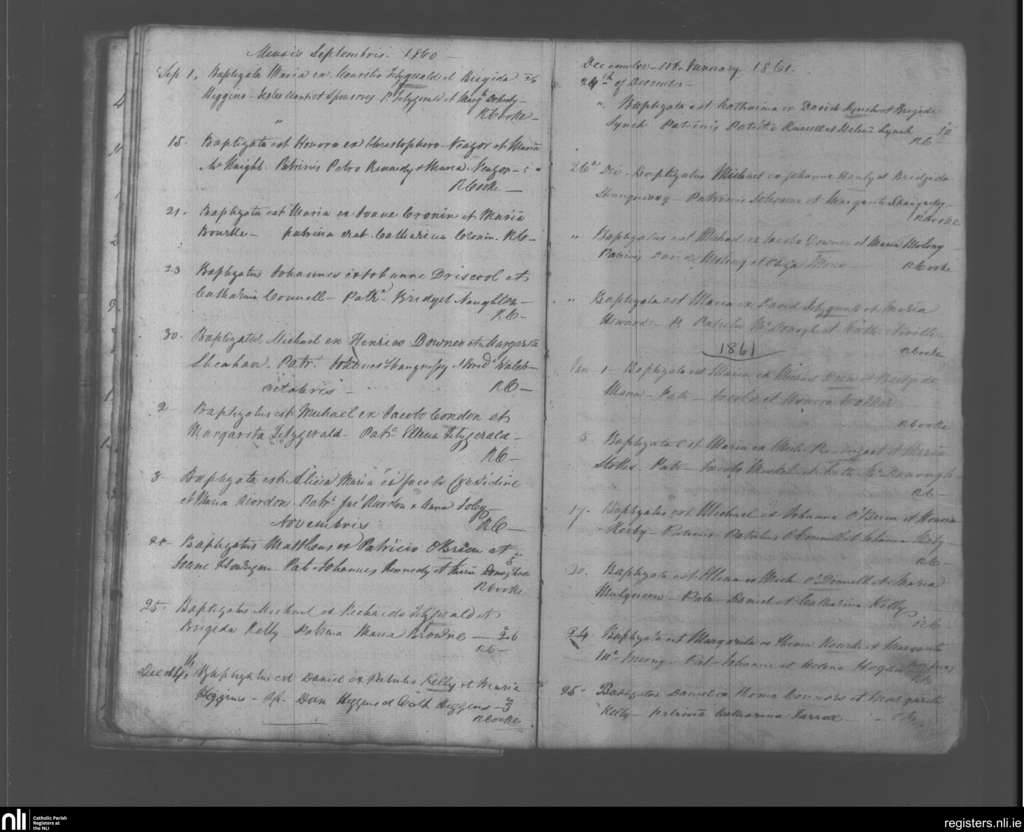 Mensis Septembris. 1860
Sep 1, Baptizata Maria ex Aurelio Fitzgerald et Brigida 2/6
Higgins - Sponsores P. Fitzgerald et Marg Doherty -
R Cooke -
"
15. Baptizata est Honora ex Christophero Neagor et Maria
McKnight. Patrinis Petro Kennedy & Maria Neagor -
R Cooke -
21. Baptizata est Maria ex Joane Cronin et Maria
Bourke - patrina erat Catharina Cronin. RC -
23 Baptizatus Johannes ex Johanne Driscool et
Catharina Connell - Patr. Bridget Naughton -
RC -
30. Baptizatus Michael ex Henrico Downes et Margarita
Sheahan. Patr. Johannes Shaugnessy & Brid Walsh -
Octobris -
RC -
2 Baptizatus est Michael ex Jacobo Condon et
Margarita Fitzgerald - Patr. Ellena Fitzgerald -
RC -
3 Baptizata est Alicia Maria ex Jacobo Considine
et Maria Riordon. Patr. Jas Riordon & Anna Foley
RC -
Novembris
20. Baptizatus Mattheus ex Patricio O'Brien et
Joane Hourigan Pat. Johannes Kennedy et Maria Donoghue
R Cooke
25. Baptizatus Michael ex Richardo Fitzgerald et
Brigida Kelly Patrina Maria Browne - 2/6
RC -
Dec 14th, Baptizatus est Daniel ex Patritio Kelly et Maria
Higgins - Sp. Dan Higgins et Cath Higgins -
R Cooke
December - 1860 January 1861.
24th of December -
" Baptizata est Katharina ex David Lynch et Brigida
Lynch Patrinis Patritio Russell et Helena Lynch
RC -
26a Die. Baptizatus Michael ex Johanne Hanly et Brigida
Shaugnessy - Patrinis Johanne et Margarita Shaugnessy -
R Cooke
" Baptizatus est Michael ex Jacobo Downes et Maria Molony
Patrinis Molony et
R Cooke
" Baptizata est Maria ex David Fitzgerald et Maria
Howard - P. Patritio McDonogh et Neville
R Cooke
1861
Jan 1 - Baptizata est Maria ex Michael et Brigida
Mara - Patr - Jacobo et Honora Walker
R Cooke
5 Baptizata est Maria ex Mich. et Maria
Stokes. Patr - Jacobo et Cath. McDonough
RC -
17. Baptizatus est Michael ex Johanne O'Brien et Honora
Kerby - Patrinis Patritius O'Connell et Johanna Kerby -
RC -
20. Baptizata est Ellena ex Mich. O'Donnell et Maria
Mulqueen - Patr - Daniel et Catharina Kelly
RC
24 Baptizata est Margarita ex Thoma et Margarita
Pat - Johanne et Helena Hogan
RC
25 - Baptizatus Daniel ex Thoma Connors et Margarita
Kelly - patrina Katharina Farrell - RC
nli
Catholic Parish
Registers at
the NLI
registers.nli.ie